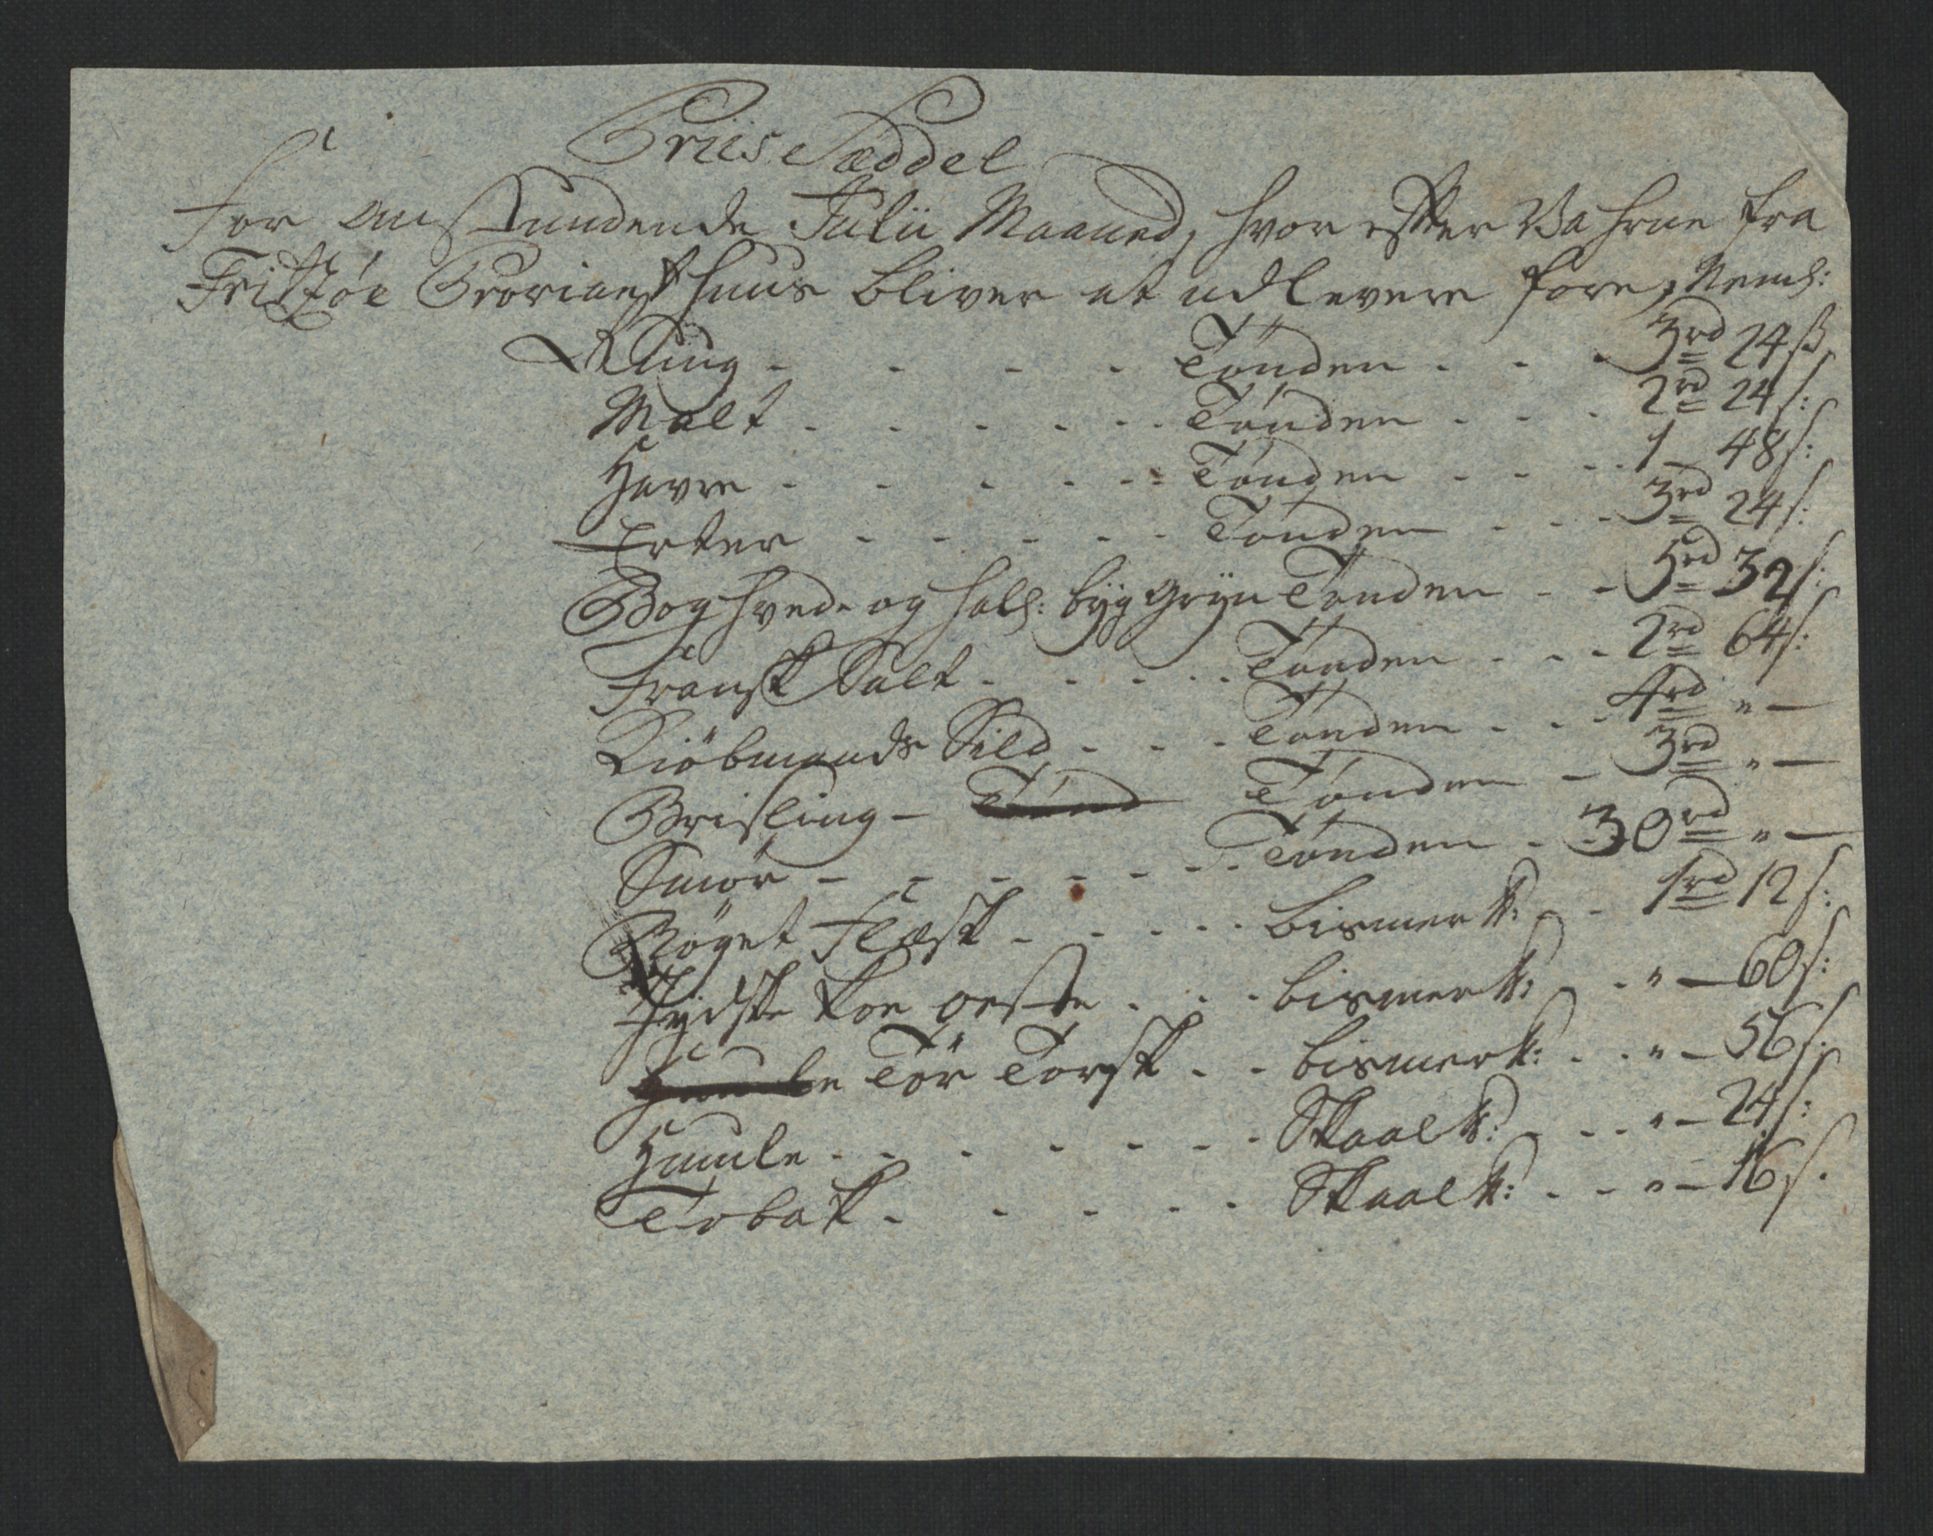 Priis Sæddel
For anstundende Julii Maaned, hvor efter Vahrne fra
Fritzøe Proviant huus bliver at udlevere fore, Neml:
Rug - - - - Tønden - - - 3rd 24 s
Malt - - - - - Tønden - - - 2rd 24 s:
Havre - - - - - - Tønden - - - 1 - 48 s:
Erter - - - - - Tønden - - - 3rd 24 s:
Boghvede og hall: byg Gryn Tønden - - 5rd 32 s:
Fransk Salt - - - - - Tønden - - - 2rd 64 s:
Kiöbmands Sild - - - Tønden - - - 4rd " -
Brisling - Tønden - 3rd " -
Smør - - - - - - - Tønden - 30rd " -
Röget Flæsk - - - - - bismerk: - - 1rd 12 s:
Jydske Koe oeste - - - bismerk: - - " - 60 s:
Tör Torsk - - bismerk: - - " - 56 s:
Humle - - - - - - - Skaalk: - - - " - 24 s:
Tobak - - - - - Skaalk: - - " - 16 s.